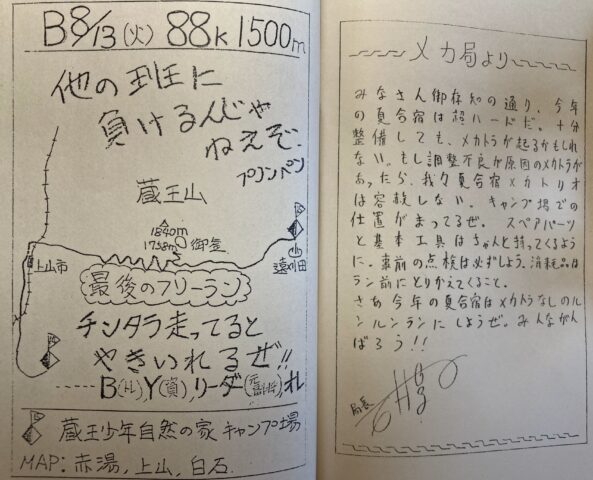 B 8/13(火) 88k 1500m
他の班に
負けるんじゃ
ねえぞ
プリンペン
蔵王山
1840m
1758m
御釜
上山市
遠刈田
最後のフリーラン
チンタラ走ってると
やきいれるぜ!!
蔵王少年自然の家 キャンプ場
MAP:赤湯,上山,白石.
メカ局より
みなさん御存知の通り、今年
の夏合宿は超ハードだ。十分
整備しても、メカトラが起るかもしれ
ない。もし調整不良が原因のメカトラが
あったら、我々夏合宿メカトリオ
は容赦しない。キャンプ場での
仕置がまってるぜ。スペアパーツ
と基本工具はちゃんと持ってくるよう
に。事前の点検は必ずしよう。消耗品は
ラン前にとりかえてくること。
さあ今年の夏合宿はメカトラなしのル
ンルンランにしようぜ。みんながん
ばろう!!
局長